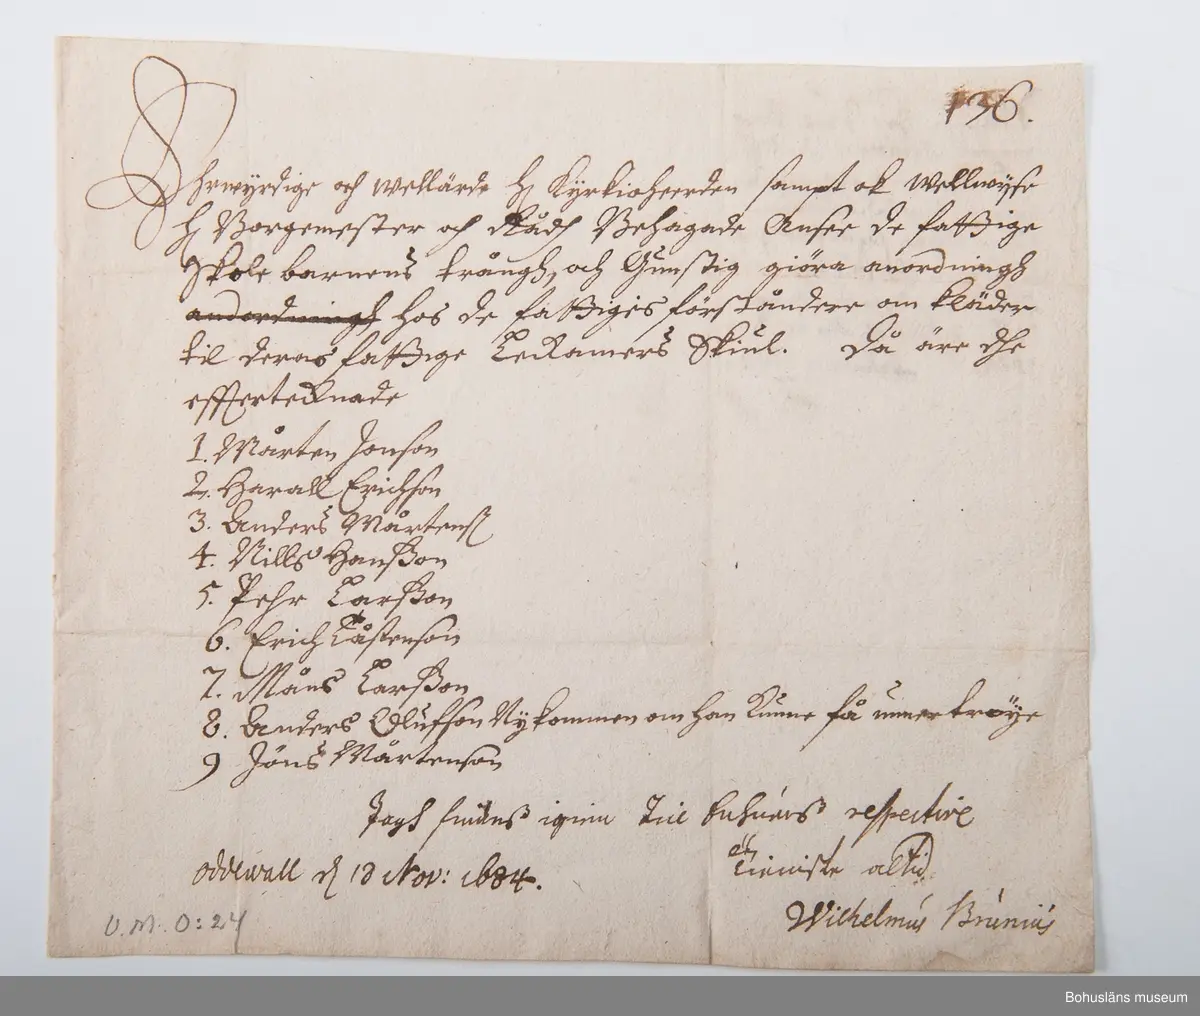 136.
Ehrwyrdige och wellärde H Kyrkioheerden sampt ok wellwyse
H Borgemester och Rådh Behagade Ansee de fattige
Skole barnens trångh, och Gunstig giöra anordningh
andordningh hos de fattiges förståndere om kläder
til deras fattige Leckamers Skiul. Då äre dhe
effterteknade
1. Mårten Jonson
2. Harall Erichson
3. Anders Mårtens
4. Nills Hanßon
5. Pehr Larßon
6. Erich Låstenson
7. Måns Larßon
8. Anders Olufson Nykommen om han kunne få en tröye
9 Jöns Mårtenson
Jagh finnß igien till respective
ähr tieniste altid
Oddewall d 18 Nov: 1684.
Wilhelmus Brunius
U.M. O:24
Bohusläns museum